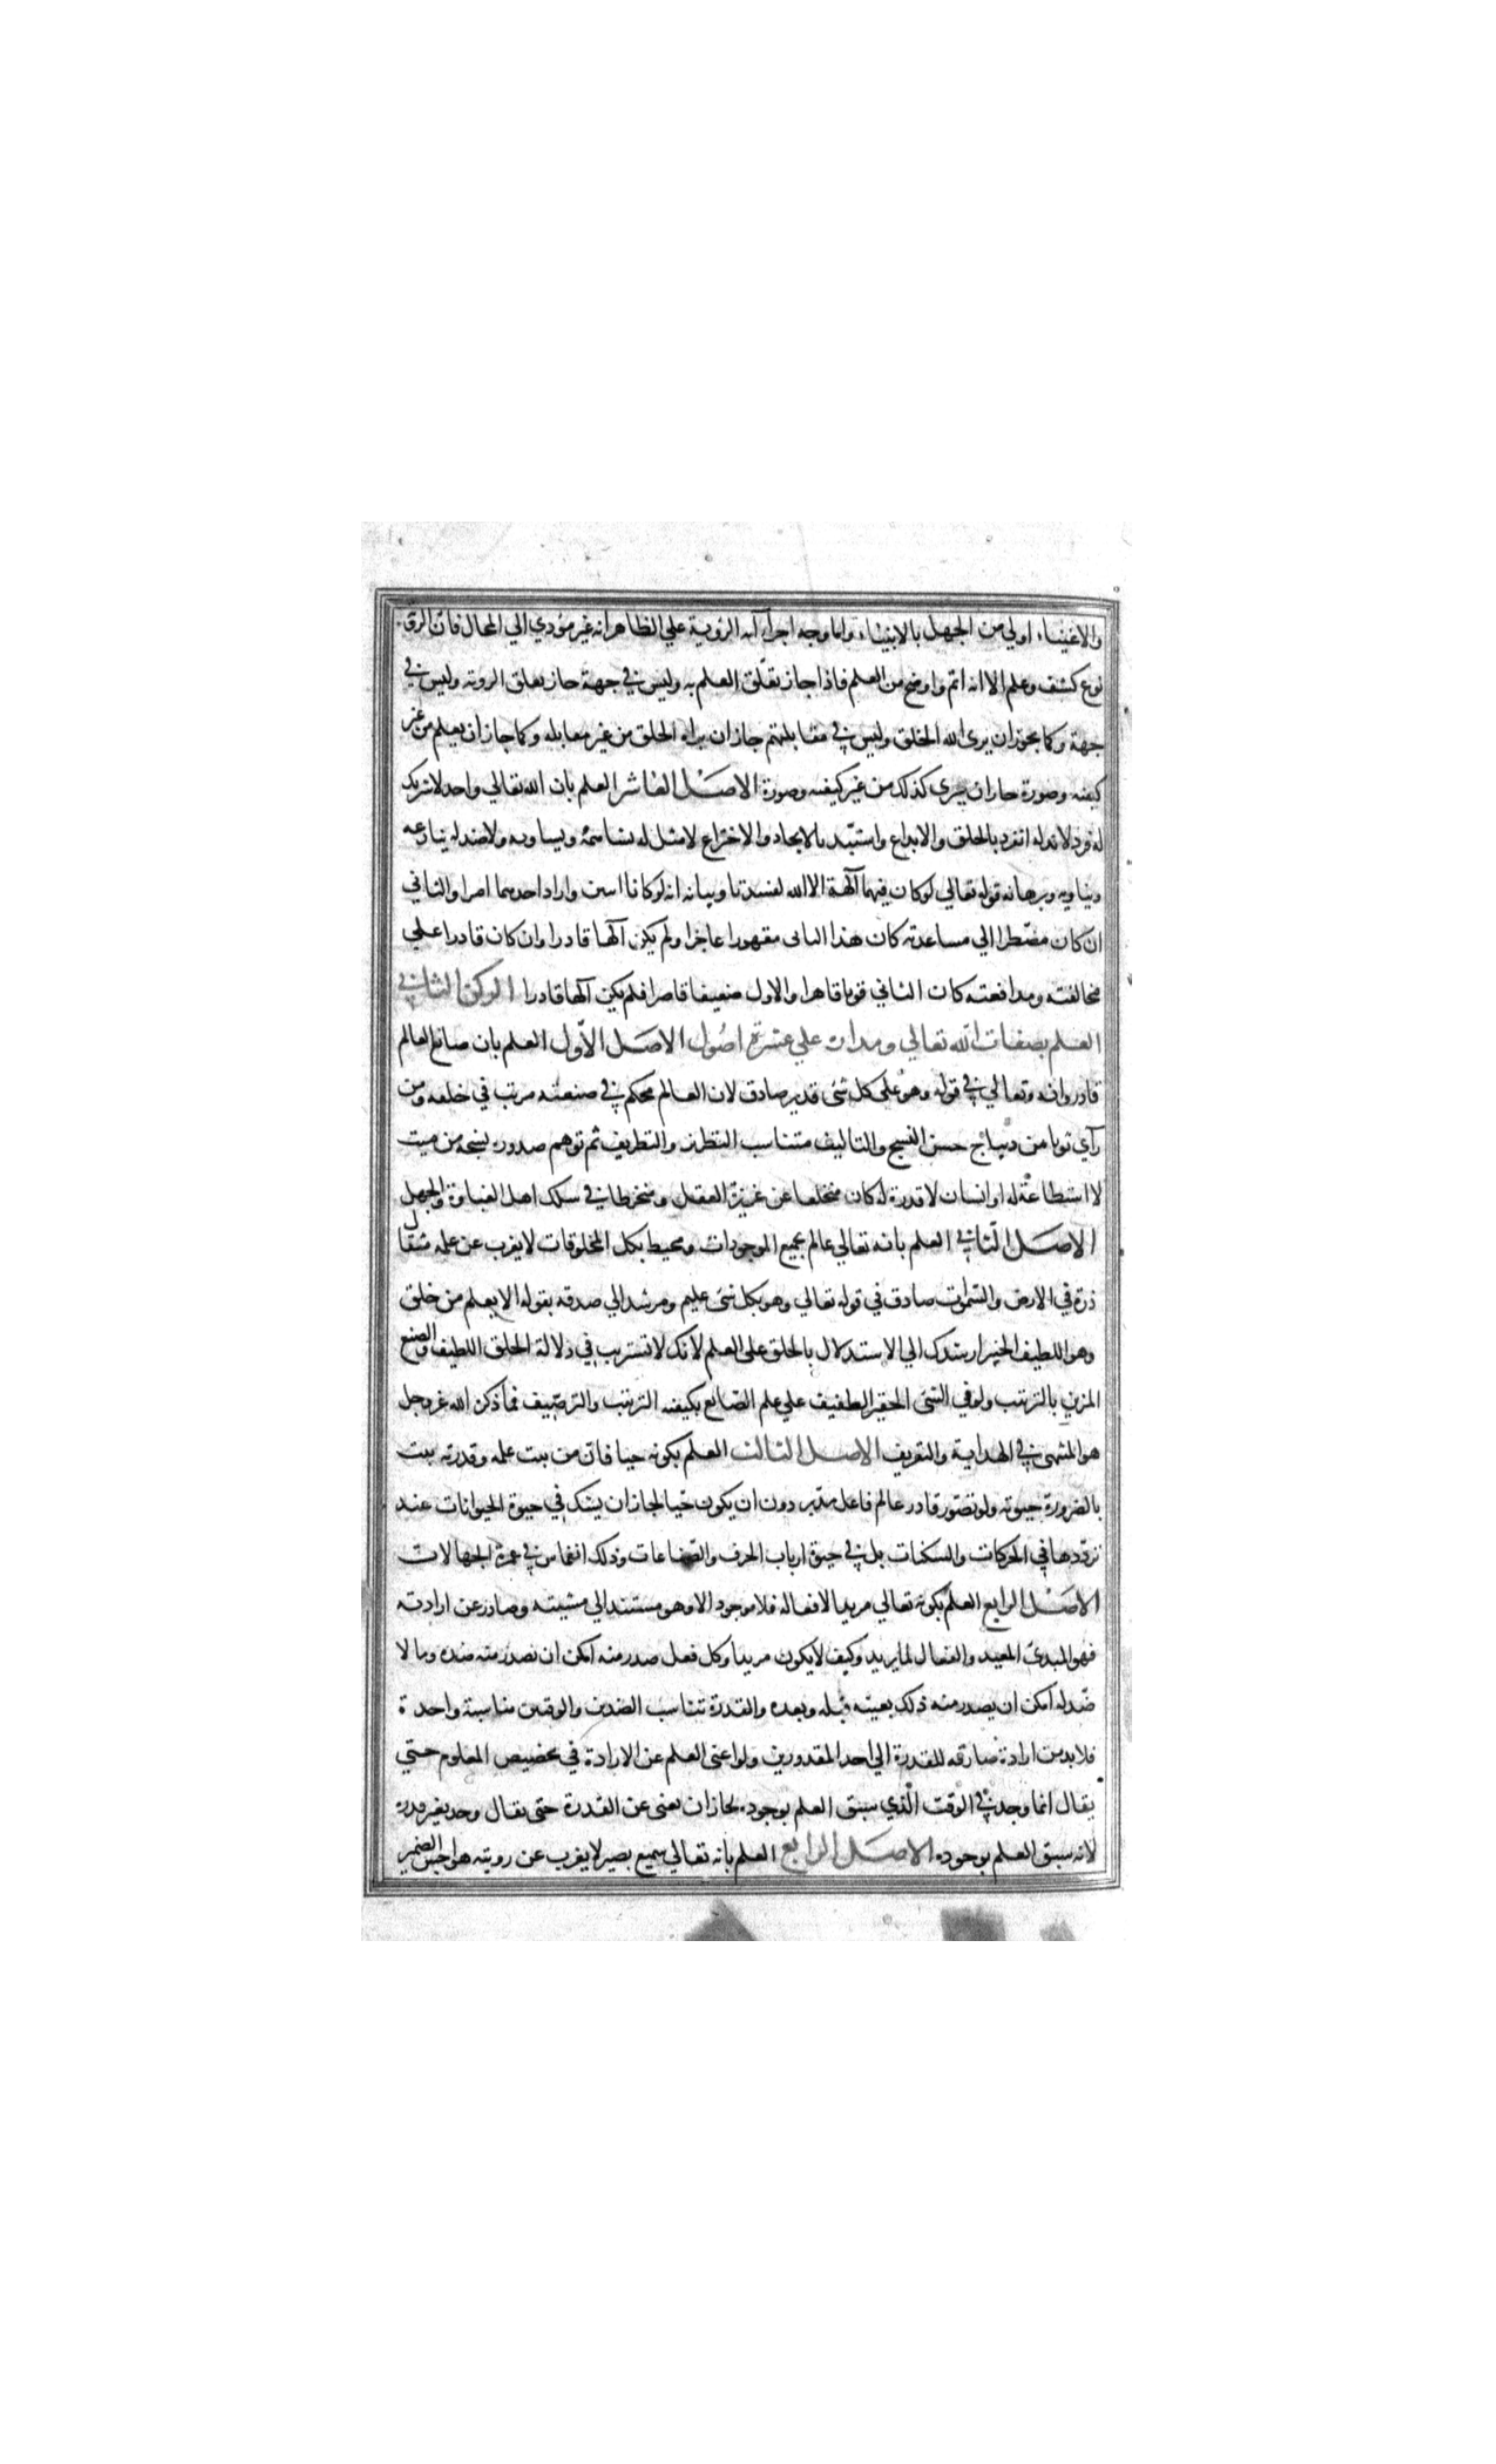 والاغنياء اولي من الجهل بالانبياء واما وجه اجراء آية الرؤية علي الظاهر انه غير مؤدي الي المحال فان الرؤية
نوع كشف وعلم الا انه اتم واوضح من العلم فاذا جاز تعلق العلم به وليس في جهة جاز تعلق الروية وليس في
جهة وكما يجوز ان يرى الله الخلق وليس في مقابلتهم جاز ان يراه الخلق من غير مقابلة وكما جاز ان يعلم من غير
كيفية وصورة جاز ان يرى كذلك من غير كيفية وصورة الاصل العاشر العلم بان الله تعالي واحد لا شريك
له فرد لا ند له انفرد بالخلق والابداع واستبد بالايجاد والاختراع لا مثل له يساهمه ويساويه ولا ضد له ينازعه
ويناويه وبرهانه قوله تعالي لو كان فيهما آلهة الا الله لفسدتا وبيانه انه لو كانا اثنين واراد احدهما امرا والثاني
ان كان مضطرا الي مساعدته كان هذا الثاني مقهورا عاجزا ولم يكن آلها قادرا وان كان قادرا علي
مخالفته ومدافعته كان الثاني قويا قاهرا والاول ضعيفا قاصرا فلم يكن آلها قادرا الركن الثاني
العلم بصفات الله تعالي ومداره علي عشرة اصول الاصل الاول العلم بان صانع العالم
قادر وانه وتعالي في قوله وهو على كل شئ قدير صادق لان العالم محكم في صنعته مرتب في خلقه ومن
رآي ثوبا من ديباج حسن النسج والتاليف متناسب التطرز والتطريف ثم توهم صدور نسجه من ميت
لا استطاعة له او انسان لا قدرة له كان منخلعا عن غريزة العقل ومنخرطا في سلك اهل الغباوة والجهل
الاصل الثاني العلم بانه تعالي عالم بجميع الموجودات ومحيط بكل المخلوقات لا يعزب عن علمه مثقال
ذرة في الارض والسموات صادق في قوله تعالي وهو بكل شئ عليم ومرشد الي صدقه بقوله الا يعلم من خلق
وهو اللطيف الخبير ارشدك الي الاستدلال بالخلق على العلم لانك لا تستريب في دلالة الخلق اللطيف والصنع
المزين بالترتيب ولو في الشئ الحقير الطفيف علي علم الصانع بكيفية الترتيب والترصيف فما ذكره الله عز وجل
هو المنتهى في الهداية والتعريف الاصل الثالث العلم بكونه حيا فان من ثبت علمه وقدرته ثبت
بالضرورة حيوته ولو تصور قادر عالم فاعل مدبر دون ان يكون حيا لجاز ان يشك في حيوة الحيوانات عند
ترددها في الحركات والسكنات بل في حيوة ارباب الحرف والصناعات وذلك انغماس في غمرة الجهالات
الاصل الرابع العلم بكونه تعالي مريدا لافعاله فلا موجود الا وهو مستند الي مشيته وصادر عن ارادته
فهو المبدئ المعيد والفعال لما يريد وكيف لا يكون مريدا وكل فعل صدر منه امكن ان يصدر منه ضده وما لا
ضد له امكن ان يصدر منه ذلك بعينه قبله وبعده والقدرة تناسب الضدين والوقتين مناسبة واحدة
فلا بد من ارادة صارفه للقدرة الي احد المقدورين ولو اغنى العلم عن الارادة في تخصيص المعلوم حتي
يقال انما وجد في الوقت الذي سبق العلم بوجوده لجاز ان يغنى عن القدرة حتى يقال وجد بغير قدرة
لانه سبق العلم بوجوده الاصل الرابع العلم بانه تعالي سميع بصير لا يعزب عن رويته هواجس الضمير